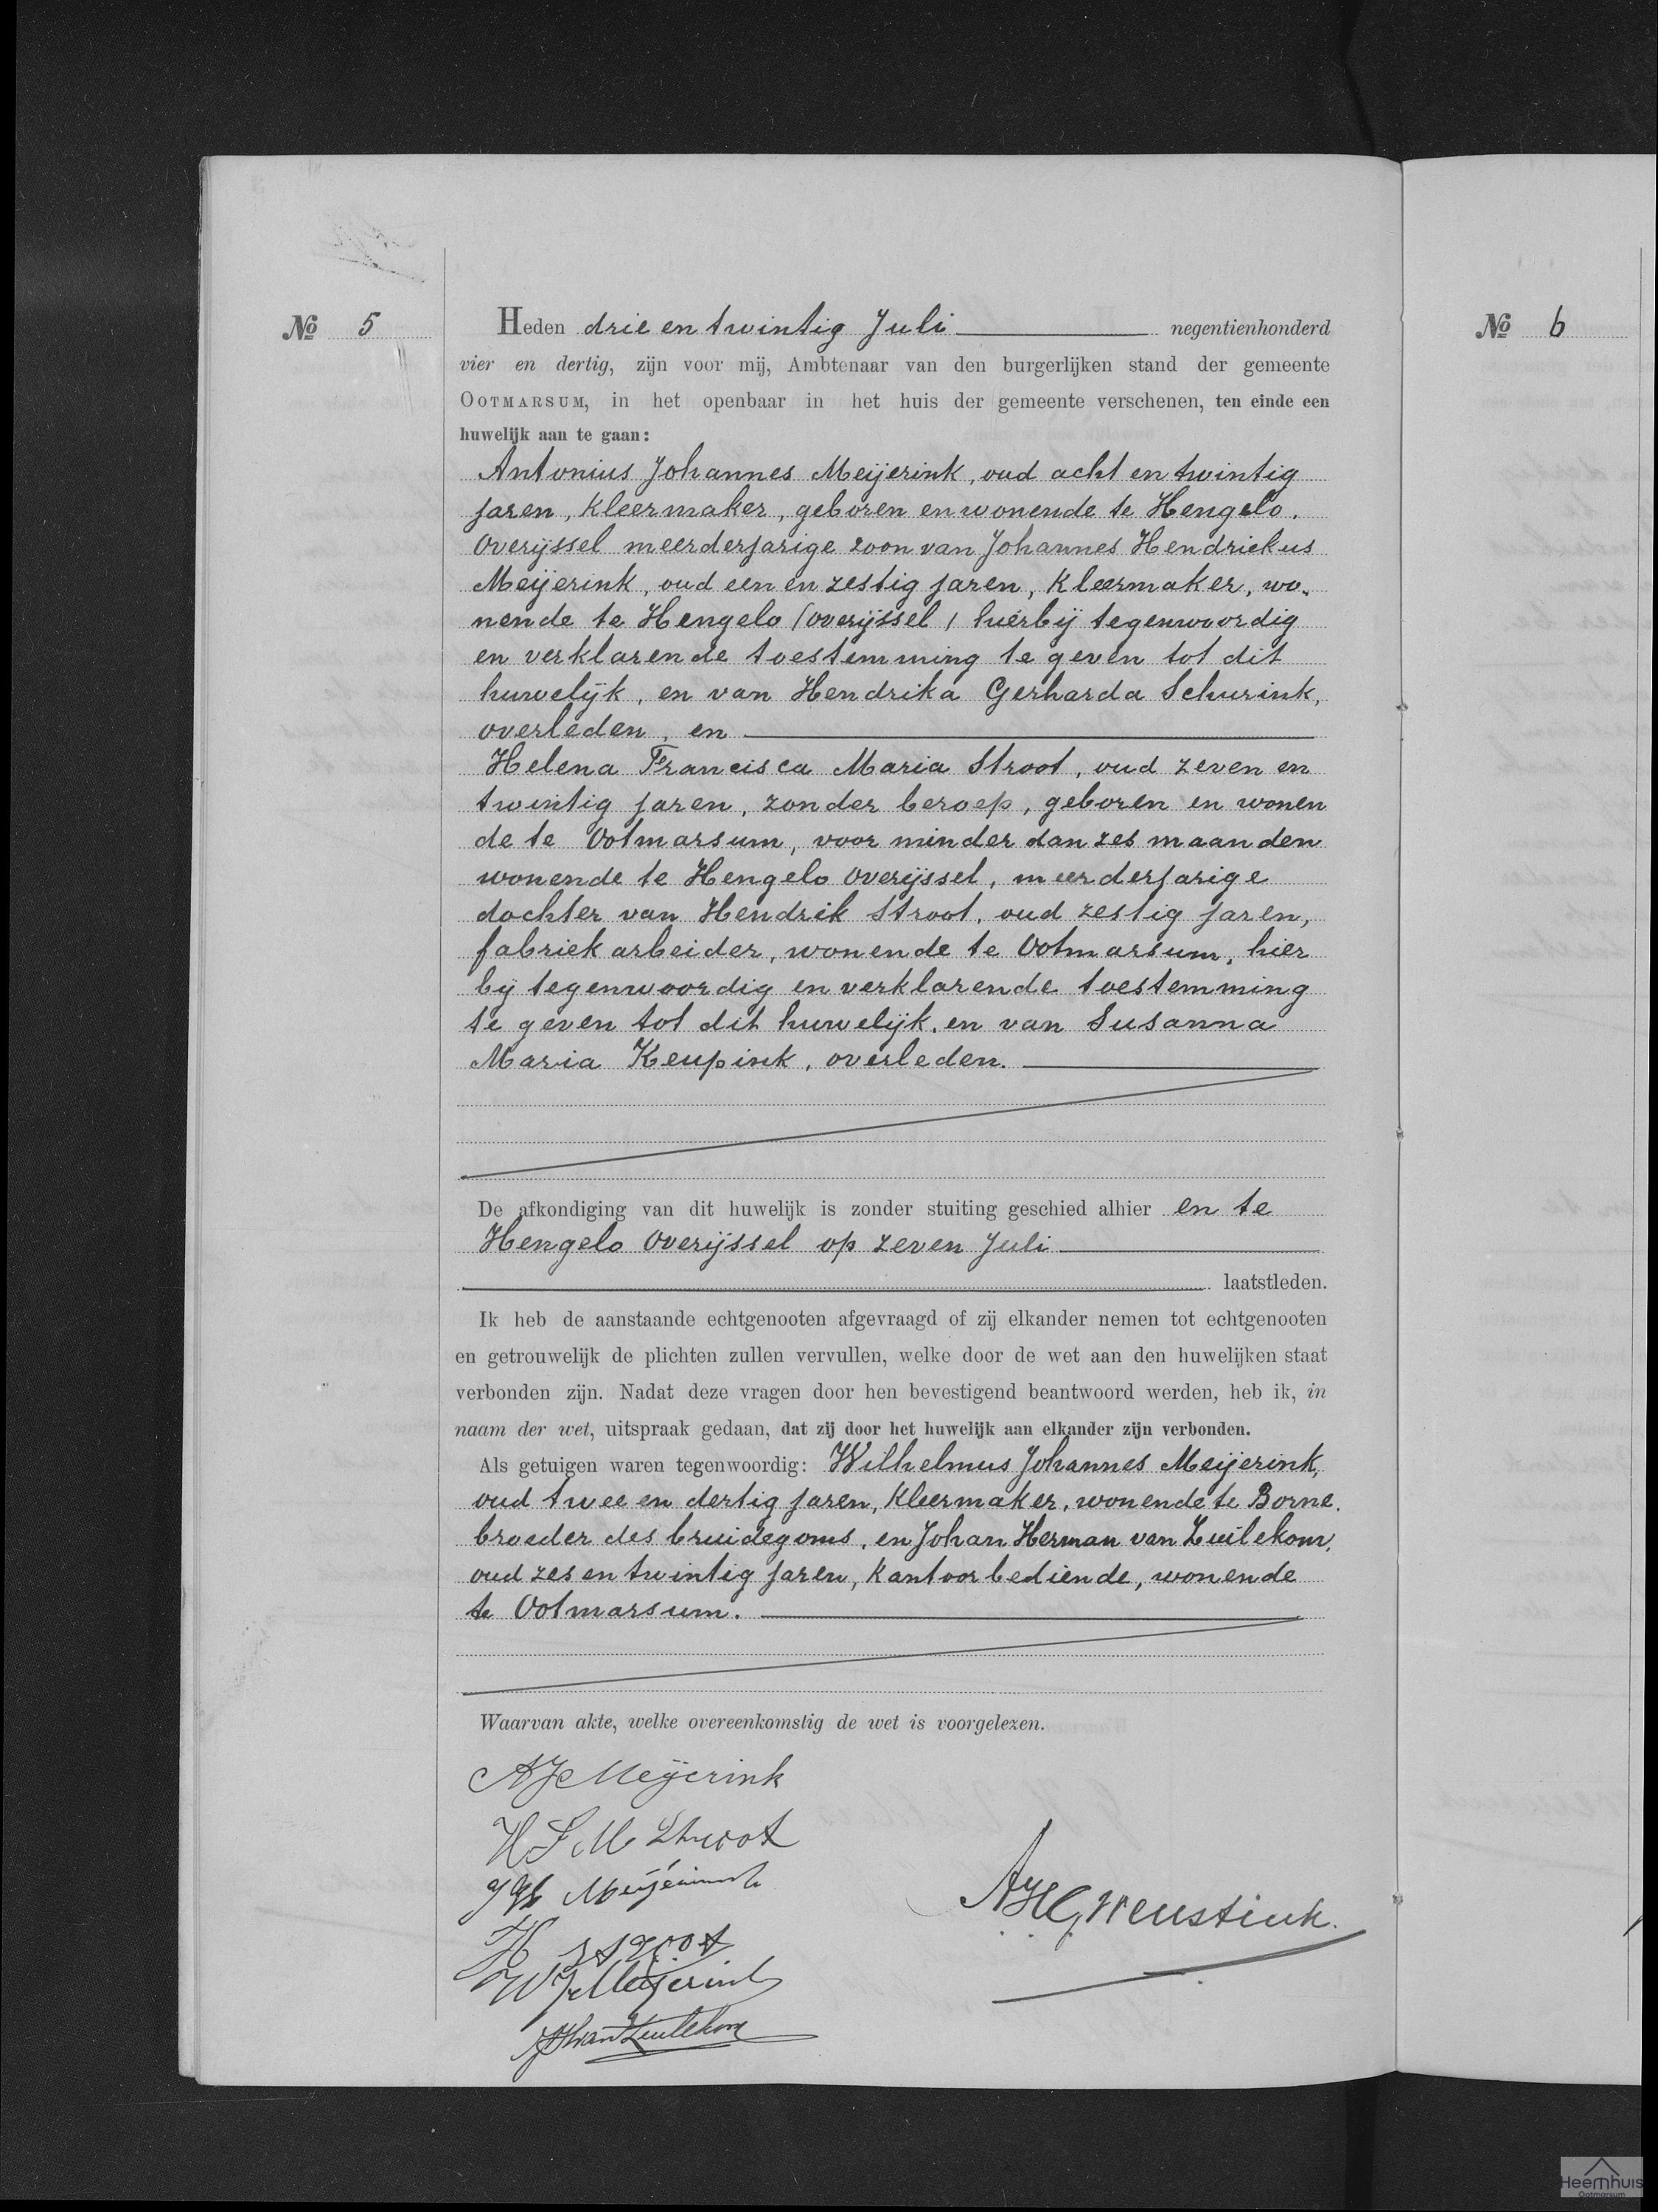 № 5
Heden drie en twintig Juli negentienhonderd
vier en dertig, zijn voor mij, Ambtenaar van den burgerlijken stand der gemeente
OOTMARSUM, in het openbaar in het huis der gemeente verschenen, ten einde een
huwelijk aan te gaan:
Antonius Johannes Meijerink, oud acht en twintig
jaren, kleermaker, geboren en wonende te Hengelo.
Overijssel meerderjarige zoon van Johannes Hendrickus
Meijerink, oud een en zestig jaren, kleermaker, wo-
nende te Hengelo (overijssel) hierbij tegenwoordig
en verklarende toestemming te geven tot dit
huwelijk, en van Hendrika Gerharda Schurink,
overleden, en
Helena Francisca Maria Stroot, oud zeven en
twintig jaren, zonder beroep, geboren en wonen
de te Ootmarsum, voor minder dan zes maanden
wonende te Hengelo overijssel, meerderjarige
dochter van Hendrik Stroot, oud zestig jaren,
fabriekarbeider, wonende te Ootmarsum, hier
bij tegenwoordig en verklarende toestemming
te geven tot dit huwelijk, en van Susanna
Maria Keupink, overleden.
De afkondiging van dit huwelijk is zonder stuiting geschied alhier en te
Hengelo Overijssel op zeven Juli
laatstleden.
Ik heb de aanstaande echtgenooten afgevraagd of zij elkander nemen tot echtgenooten
en getrouwelijk de plichten zullen vervullen, welke door de wet aan den huwelijken staat
verbonden zijn. Nadat deze vragen door hen bevestigend beantwoord werden, heb ik, in
naam der wet, uitspraak gedaan, dat zij door het huwelijk aan elkander zijn verbonden.
Als getuigen waren tegenwoordig: Wilhelmus Johannes Meijerink,
oud twee en dertig jaren, kleermaker, wonende te Borne.
broeder des bruidegoms, en Johan Herman van Zuilekom,
oud zes en twintig jaren, kantoorbediende, wonende
te Ootmarsum.
Waarvan akte, welke overeenkomstig de wet is voorgelezen.
AJ Meijerink
H F M Stroot
J H Meijerink
H Stroot
W J Meijerink
JH van Zuilekom
AHG Weustink.
№ 6
Heemhuis
Ootmarsum